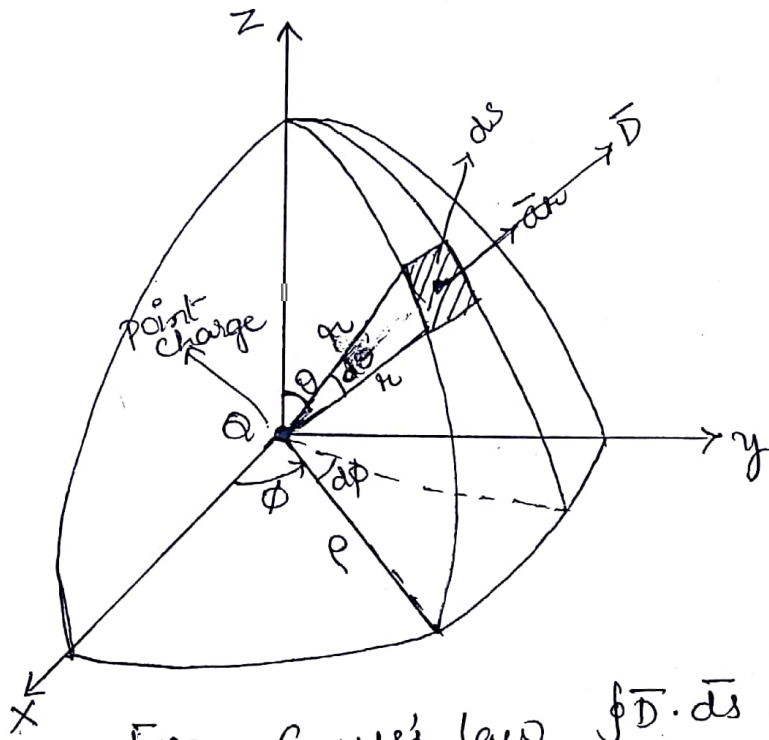 Z
ds
D̅
a̅r
point
charge
r
θ
dθ
r
Q
y
ϕ
dϕ
ρ
X
From Gauss's law ∮D̅·d̅s̅